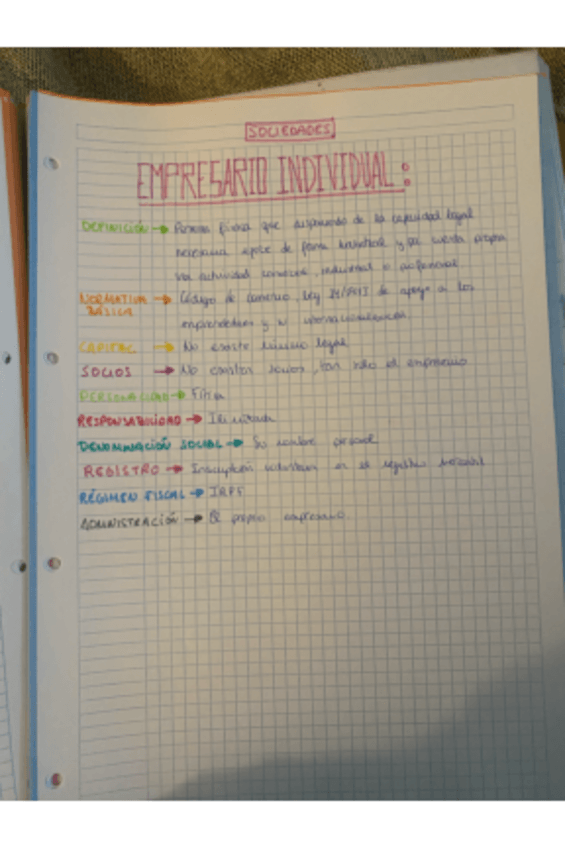 SOCIEDADES
EMPRESARIO INDIVIDUAL:
DEFINICIÓN → Persona física que disponiendo de la capacidad legal
necesaria ejerce de forma habitual y por cuenta propia
una actividad comercial, industrial o profesional
NORMATIVA → Código de comercio, Ley 14/2013 de apoyo a los
BÁSICA
emprendedores y su internacionalización
CAPITAL → No existe mínimo legal
SOCIOS → No existen socios, tan solo el empresario
PERSONALIDAD → Física
RESPONSABILIDAD → Ilimitada
DENOMINACIÓN SOCIAL → Su nombre personal
REGISTRO → Inscripción voluntaria en el registro mercantil
RÉGIMEN FISCAL → IRPF
ADMINISTRACIÓN → El propio empresario